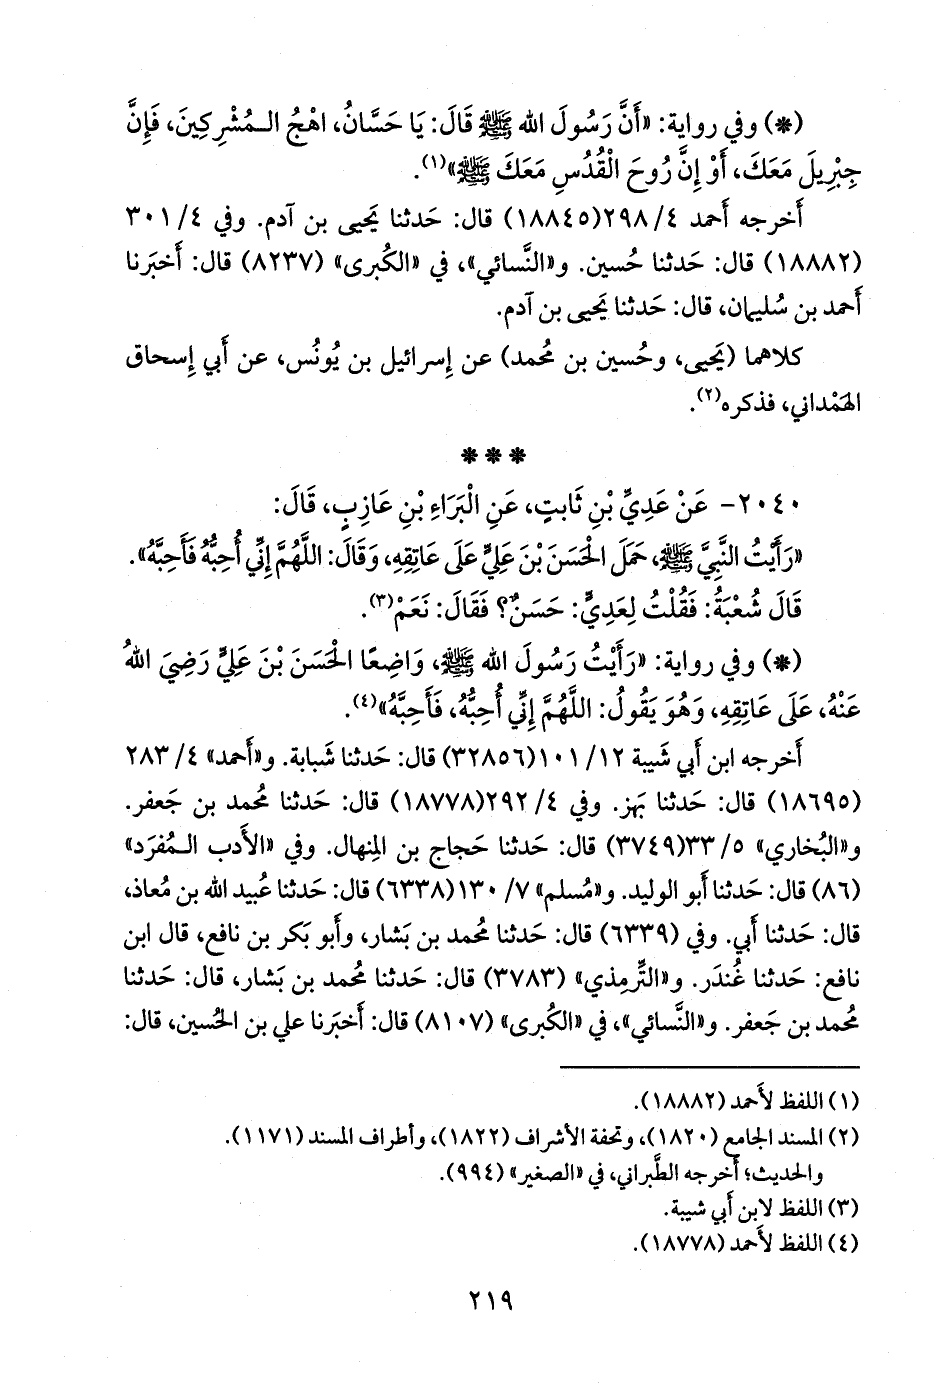 (*) وفي رواية: «أَنَّ رَسُولَ الله ﷺ قَالَ: يَا حَسَّانُ، اهْجُ الـمُشْرِكِينَ، فَإِنَّ
جِبْرِيلَ مَعَكَ، أَوْ إِنَّ رُوحَ الْقُدُسِ مَعَكَ ﷺ»(١).
أَخرجه أَحمد ٤/ ٢٩٨(١٨٨٤٥) قال: حَدثنا يَحيى بن آدم. وفي ٤/ ٣٠١
(١٨٨٨٢) قال: حَدثنا حُسين. و«النَّسائي»، في «الكُبرى» (٨٢٣٧) قال: أَخبَرنا
أَحمد بن سُليمان، قال: حَدثنا يَحيى بن آدم.
كلاهما (يَحيى، وحُسين بن مُحمد) عن إِسرائيل بن يُونُس، عن أَبي إِسحاق
الهَمْداني، فذكره(٢).
* * *
٢٠٤٠- عَنْ عَدِيِّ بْنِ ثَابتٍ، عَنِ الْبَرَاءِ بْنِ عَازِبٍ، قَالَ:
«رَأَيْتُ النَّبِيَّ ﷺ، حَمَلَ الْحَسَنَ بْنَ عَلِيٍّ عَلَى عَاتِقِهِ، وَقَالَ: اللَّهُمَّ إِنِّي أُحِبُّهُ فَأَحِبَّهُ».
قَالَ شُعْبَةُ: فَقُلْتُ لِعَدِيٍّ: حَسَنٌ؟ فَقَالَ: نَعَمْ(٣).
(*) وفي رواية: «رَأَيْتُ رَسُولَ الله ﷺ، وَاضِعًا الْحَسَنَ بْنَ عَلِيٍّ رَضِيَ اللهُ
عَنْهُ، عَلَى عَاتِقِهِ، وَهُوَ يَقُولُ: اللَّهُمَّ إِنِّي أُحِبُّهُ، فَأَحِبَّهُ»(٤).
أَخرجه ابن أَبي شَيبة ١٢/ ١٠١(٣٢٨٥٦) قال: حَدثنا شَبابة. و«أَحمد» ٤/ ٢٨٣
(١٨٦٩٥) قال: حَدثنا بَهز. وفي ٤/ ٢٩٢(١٨٧٧٨) قال: حَدثنا مُحمد بن جَعفر.
و«البُخاري» ٥/ ٣٣(٣٧٤٩) قال: حَدثنا حَجاج بن المِنهال. وفي «الأَدب الـمُفرَد»
(٨٦) قال: حَدثنا أَبو الوليد. و«مُسلم» ٧/ ١٣٠(٦٣٣٨) قال: حَدثنا عُبيد الله بن مُعاذ،
قال: حَدثنا أَبي. وفي (٦٣٣٩) قال: حَدثنا مُحمد بن بَشار، وأَبو بَكر بن نافع، قال ابن
نافع: حَدثنا غُندَر. و«التِّرمِذي» (٣٧٨٣) قال: حَدثنا مُحمد بن بَشار، قال: حَدثنا
مُحمد بن جَعفر. و«النَّسائي»، في «الكُبرى» (٨١٠٧) قال: أَخبَرنا علي بن الحُسين، قال:
(١) اللفظ لأَحمد (١٨٨٨٢).
(٢) المسند الجامع (١٨٢٠)، وتحفة الأشراف (١٨٢٢)، وأطراف المسند (١١٧١).
والحديث؛ أَخرجه الطَّبراني، في «الصغير» (٩٩٤).
(٣) اللفظ لابن أَبي شيبة.
(٤) اللفظ لأَحمد (١٨٧٧٨).
٢١٩